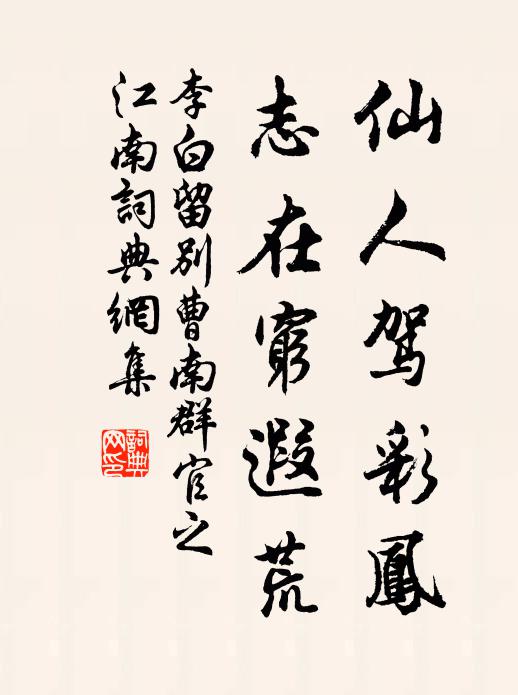 仙人駕彩鳳
志在窮遐荒
李白留別曹南群官之
江南詞典網集
詞典网印